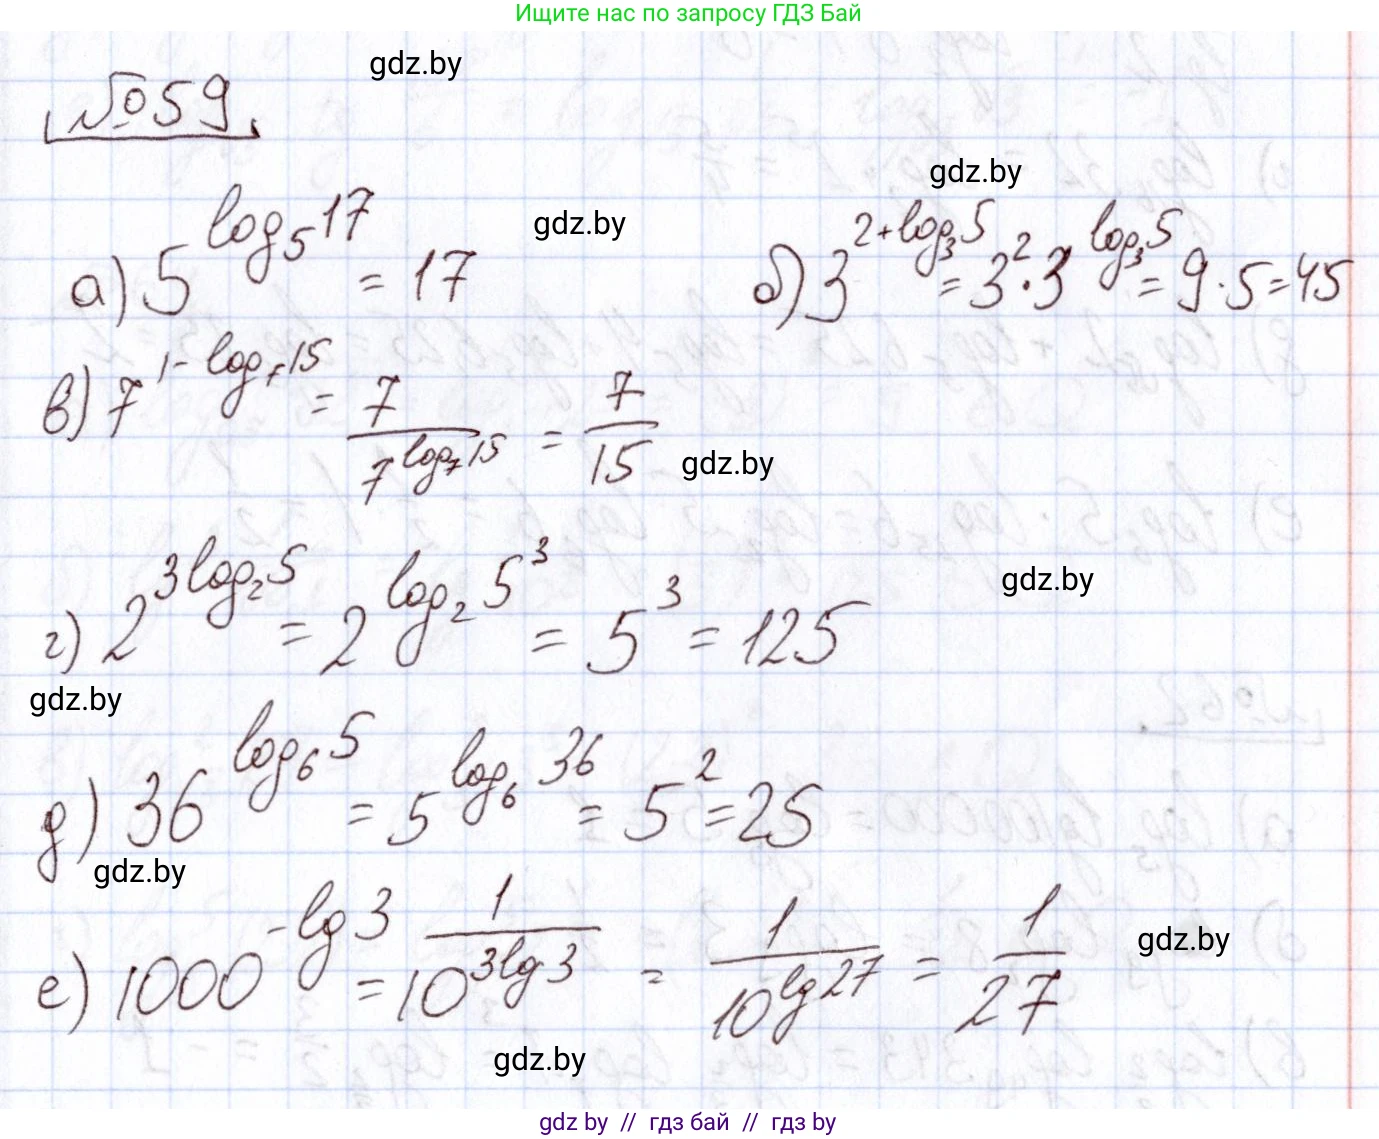 Ищите нас по запросу ГДЗ Бай
gdz.by
№59
gdz.by
gdz.by
а) 5^{log_5 17} = 17
б) 3^{2+log_3 5} = 3^2 · 3^{log_3 5} = 9 · 5 = 45
в) 7^{1-log_7 15} = \frac{7}{7^{log_7 15}} = \frac{7}{15}
gdz.by
г) 2^{3log_2 5} = 2^{log_2 5^3} = 5^3 = 125
gdz.by
gdz.by
д) 36^{log_6 5} = 5^{log_6 36} = 5^2 = 25
gdz.by
е) 1000^{-lg 3} = \frac{1}{10^{3lg 3}} = \frac{1}{10^{lg 27}} = \frac{1}{27}
gdz.by
gdz.by
gdz by // гдз бай // гдз by